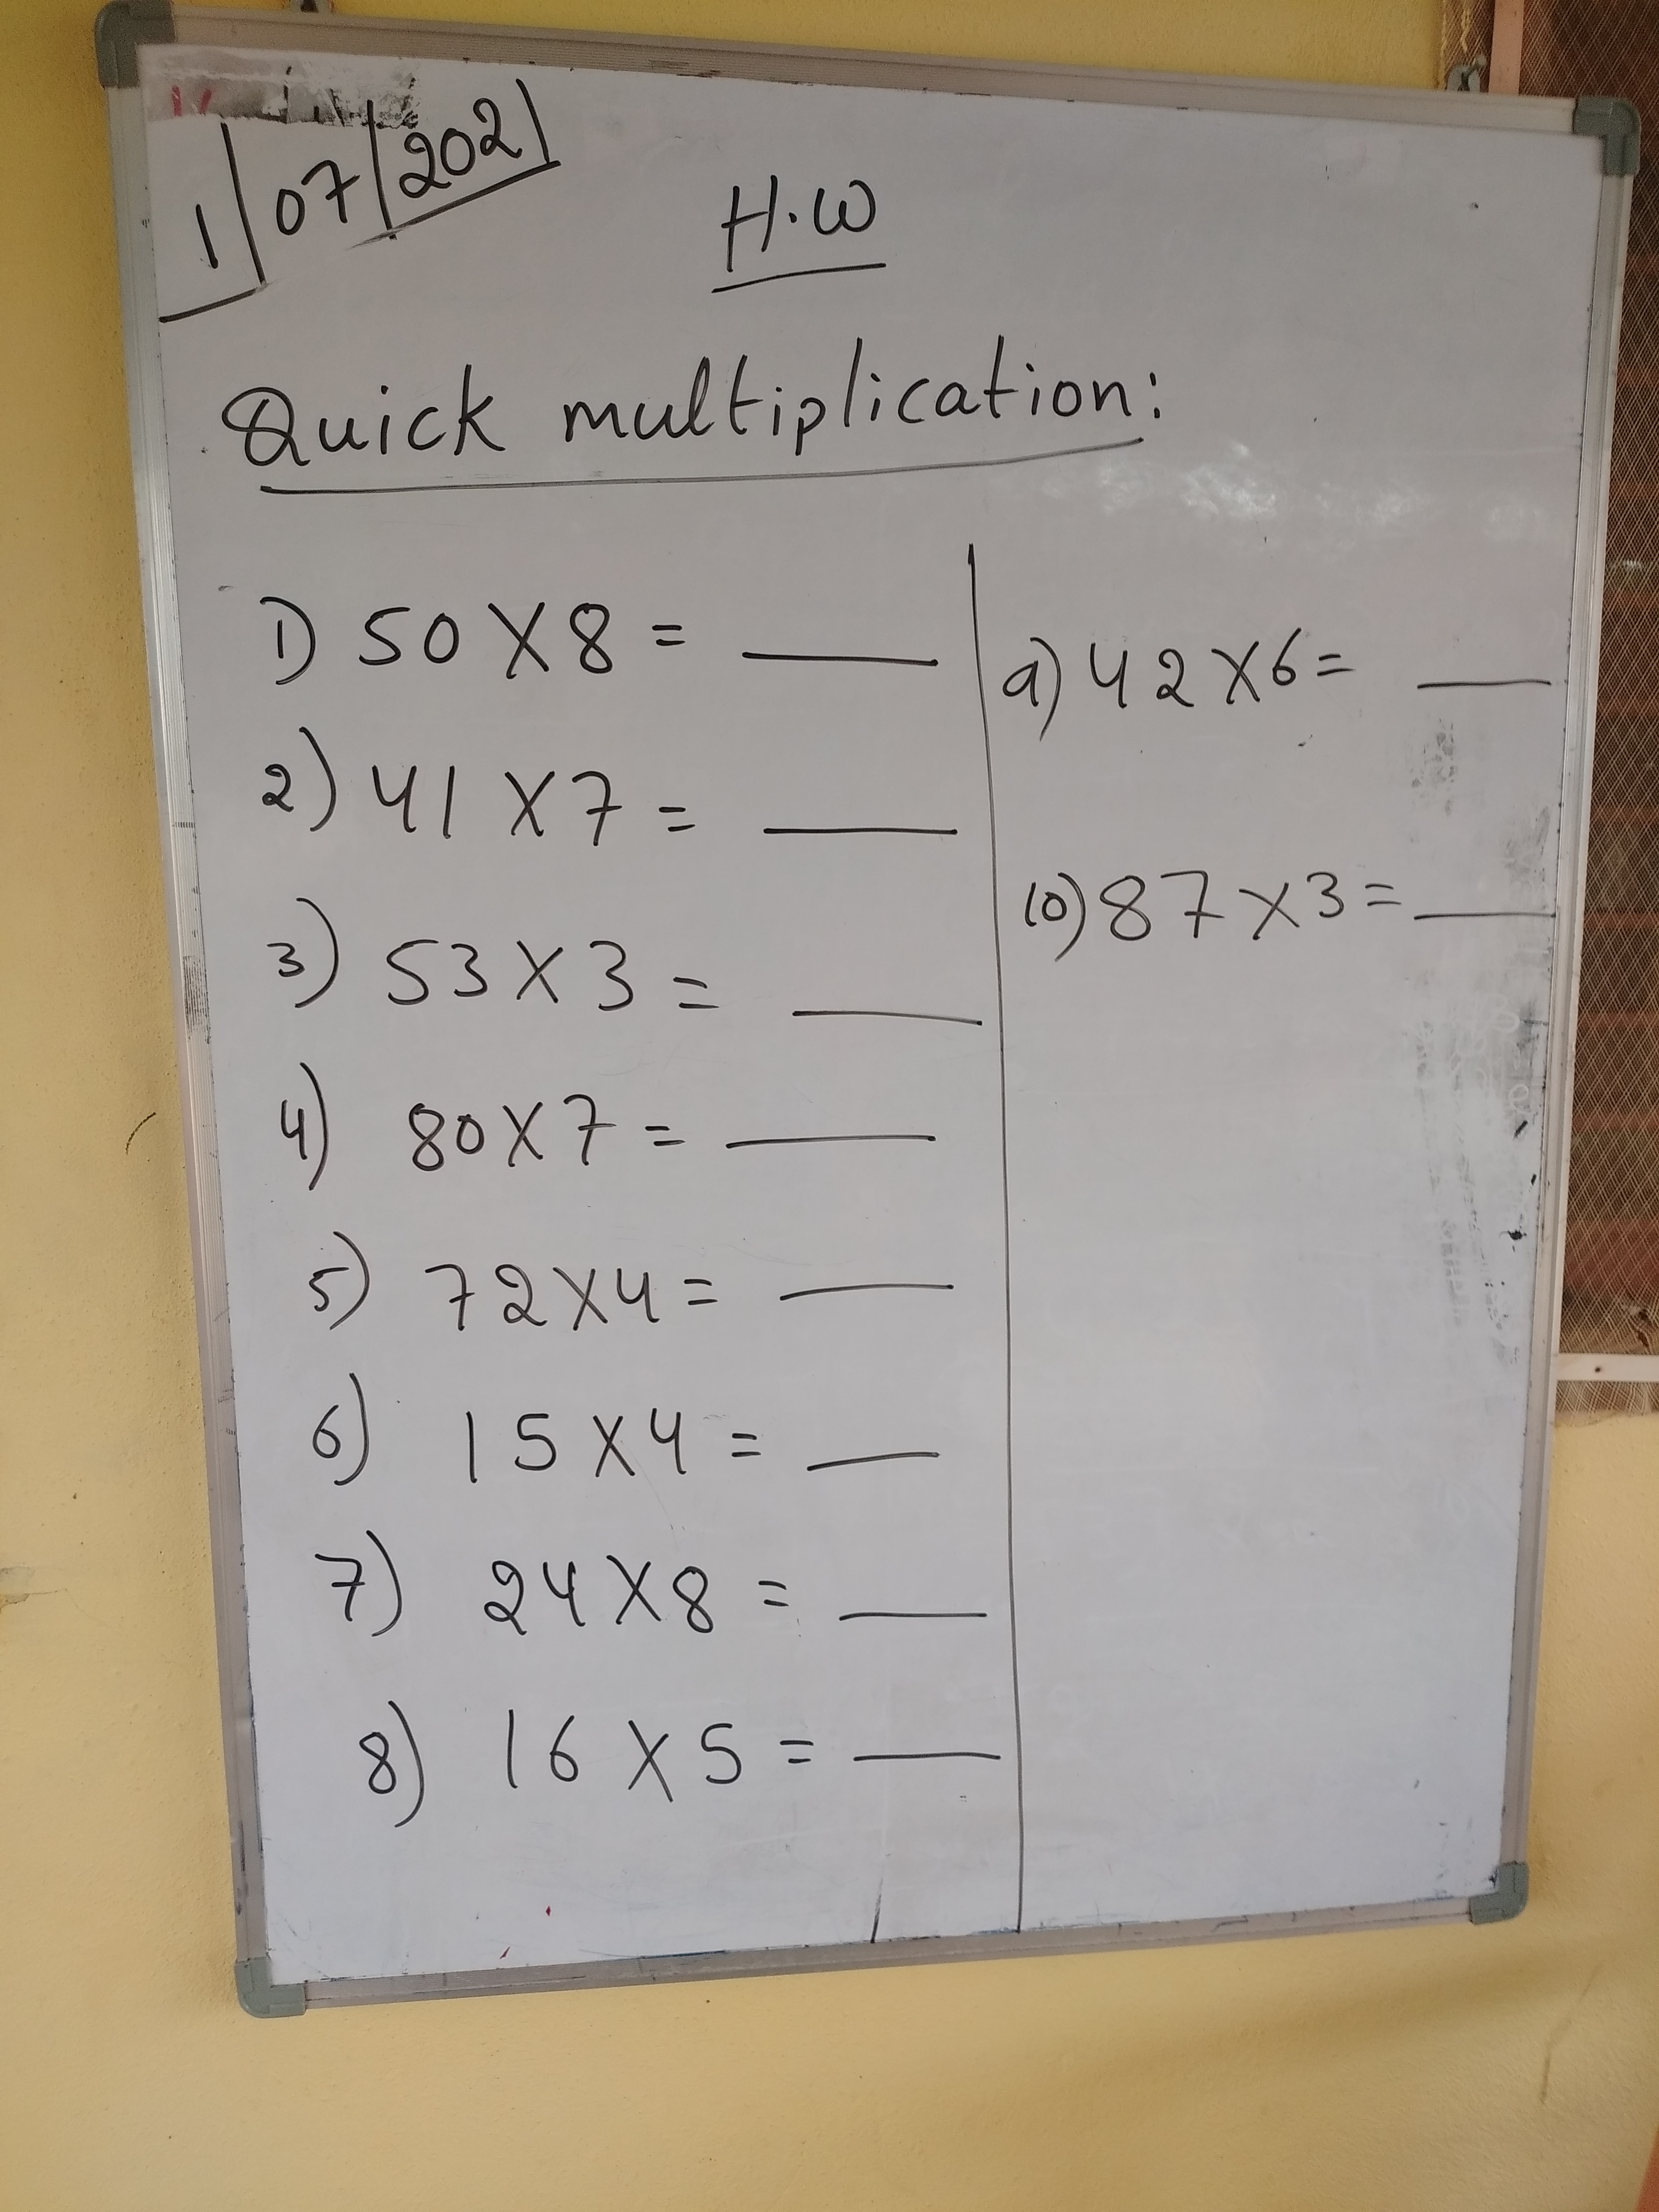 1/07/2021
H.W
Quick multiplication:
1) 50 X 8 = ___
2) 41 X 7 = ___
3) 53 X 3 = ___
4) 80 X 7 = ___
5) 72 X 4 = ___
6) 15 X 4 = ___
7) 24 X 8 = ___
8) 16 X 5 = ___
9) 42 X 6 = ___
10) 87 X 3 = ___